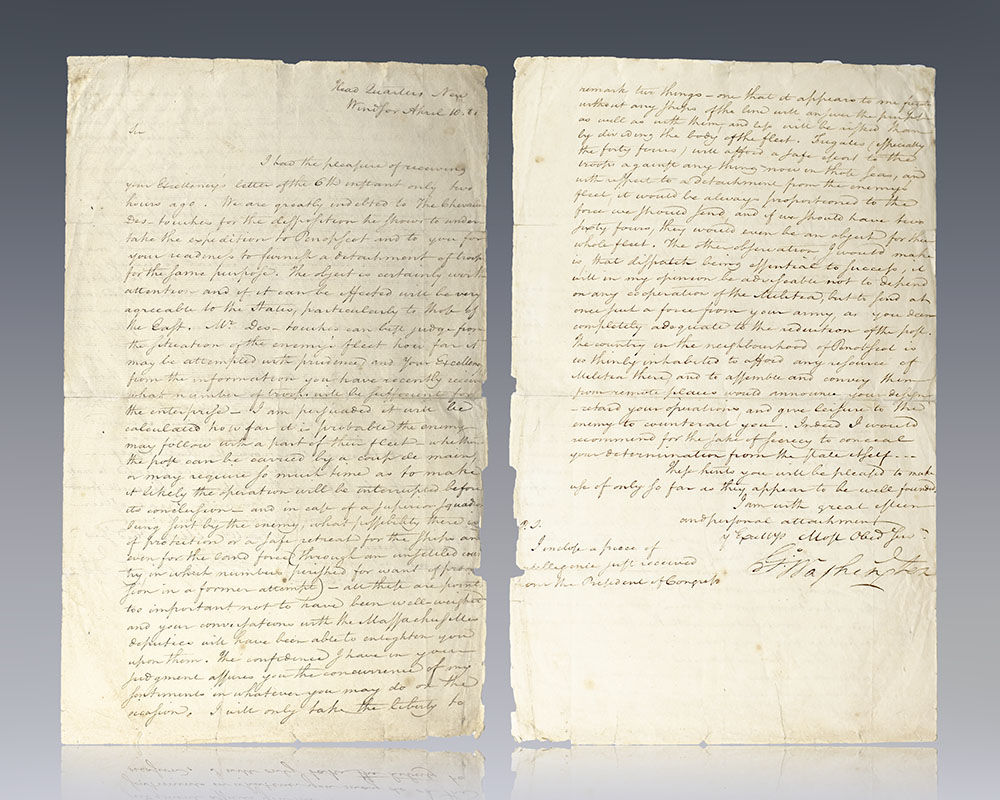 Head Quarters New
Windsor April 10. 81
Sir
I had the pleasure of receiving
your Excellencys letter of the 6th instant only two
hours ago. We are greatly indebted to The Chevalier
Des-touches for the disposition he shows to under
take the expedition to Penopscot and to you for
your readiness to furnish a detachment of troops
for the same purpose. The object is certainly worth
attention and if it can be effected will be very
agreeable to the States, particularly to those of
the East. Mr Des-touches can best judge from
the situation of the enemys fleet how far it
may be attempted with prudence and Your Excellency
from the information you have recently received
what number of troops will be sufficient for
the enterprise - I am persuaded it will be
calculated how far it is probable the enemy
may follow with a part of their fleet whether
the post can be carried by a coup de main
or may require so much time as to make
it likely the operation will be interrupted before
its conclusion and in case of a superior squadron
being sent by the enemy, what possibility there is
of protection or a safe retreat for the ships and
even for the land force (through an unsettled coun
try in which numbers perished for want of provi
sion in a former attempt) - all these are points
too important not to have been well-weighed
and your conversations with the Massachusettes
deputies will have been able to enlighten you
upon them. The confidence I have in your
judgment assures you the concurrence of my
sentiments in whatever you may do on the
occasion. I will only take the liberty to
remark two things - one that it appears to me
without any ships of the line will answer the purpose
as well as with them and less will be risked than
by dividing the body of the fleet. Frigates (especially
the forty fours) will afford a safe escort to the
troops against any thing now in those seas, and
with respect to a detachment from the enemys
fleet, it would be always proportioned to the
force we should send, and if we should have two
sixty fours, they would even be an object for their
whole fleet. The other observation I would make
is that dispatch being essential to success, it
will in my opinion be adviseable not to depend
on any cooperation of the Militea, but to send at
once such a force from your army as you deem
completely adequate to the reduction of the post.
The country in the neighbourhood of Penobscot is
too thinly inhabited to afford any resource of
Militea there, and to assemble and convey them
from remote places would announce your design
- retard your operations and give leisure to the
enemy to counteract you. Indeed I would
recommend for the sake of secrecy to conceal
your determination from the state itself...
These hints you will be pleased to make
use of only so far as they appear to be well founded
I am with great esteem
and personal attachment
Yr Excellys Most Obed Serv
Go Washington
P.S.
I inclose a piece of
intelligence just received
from the President of Congress